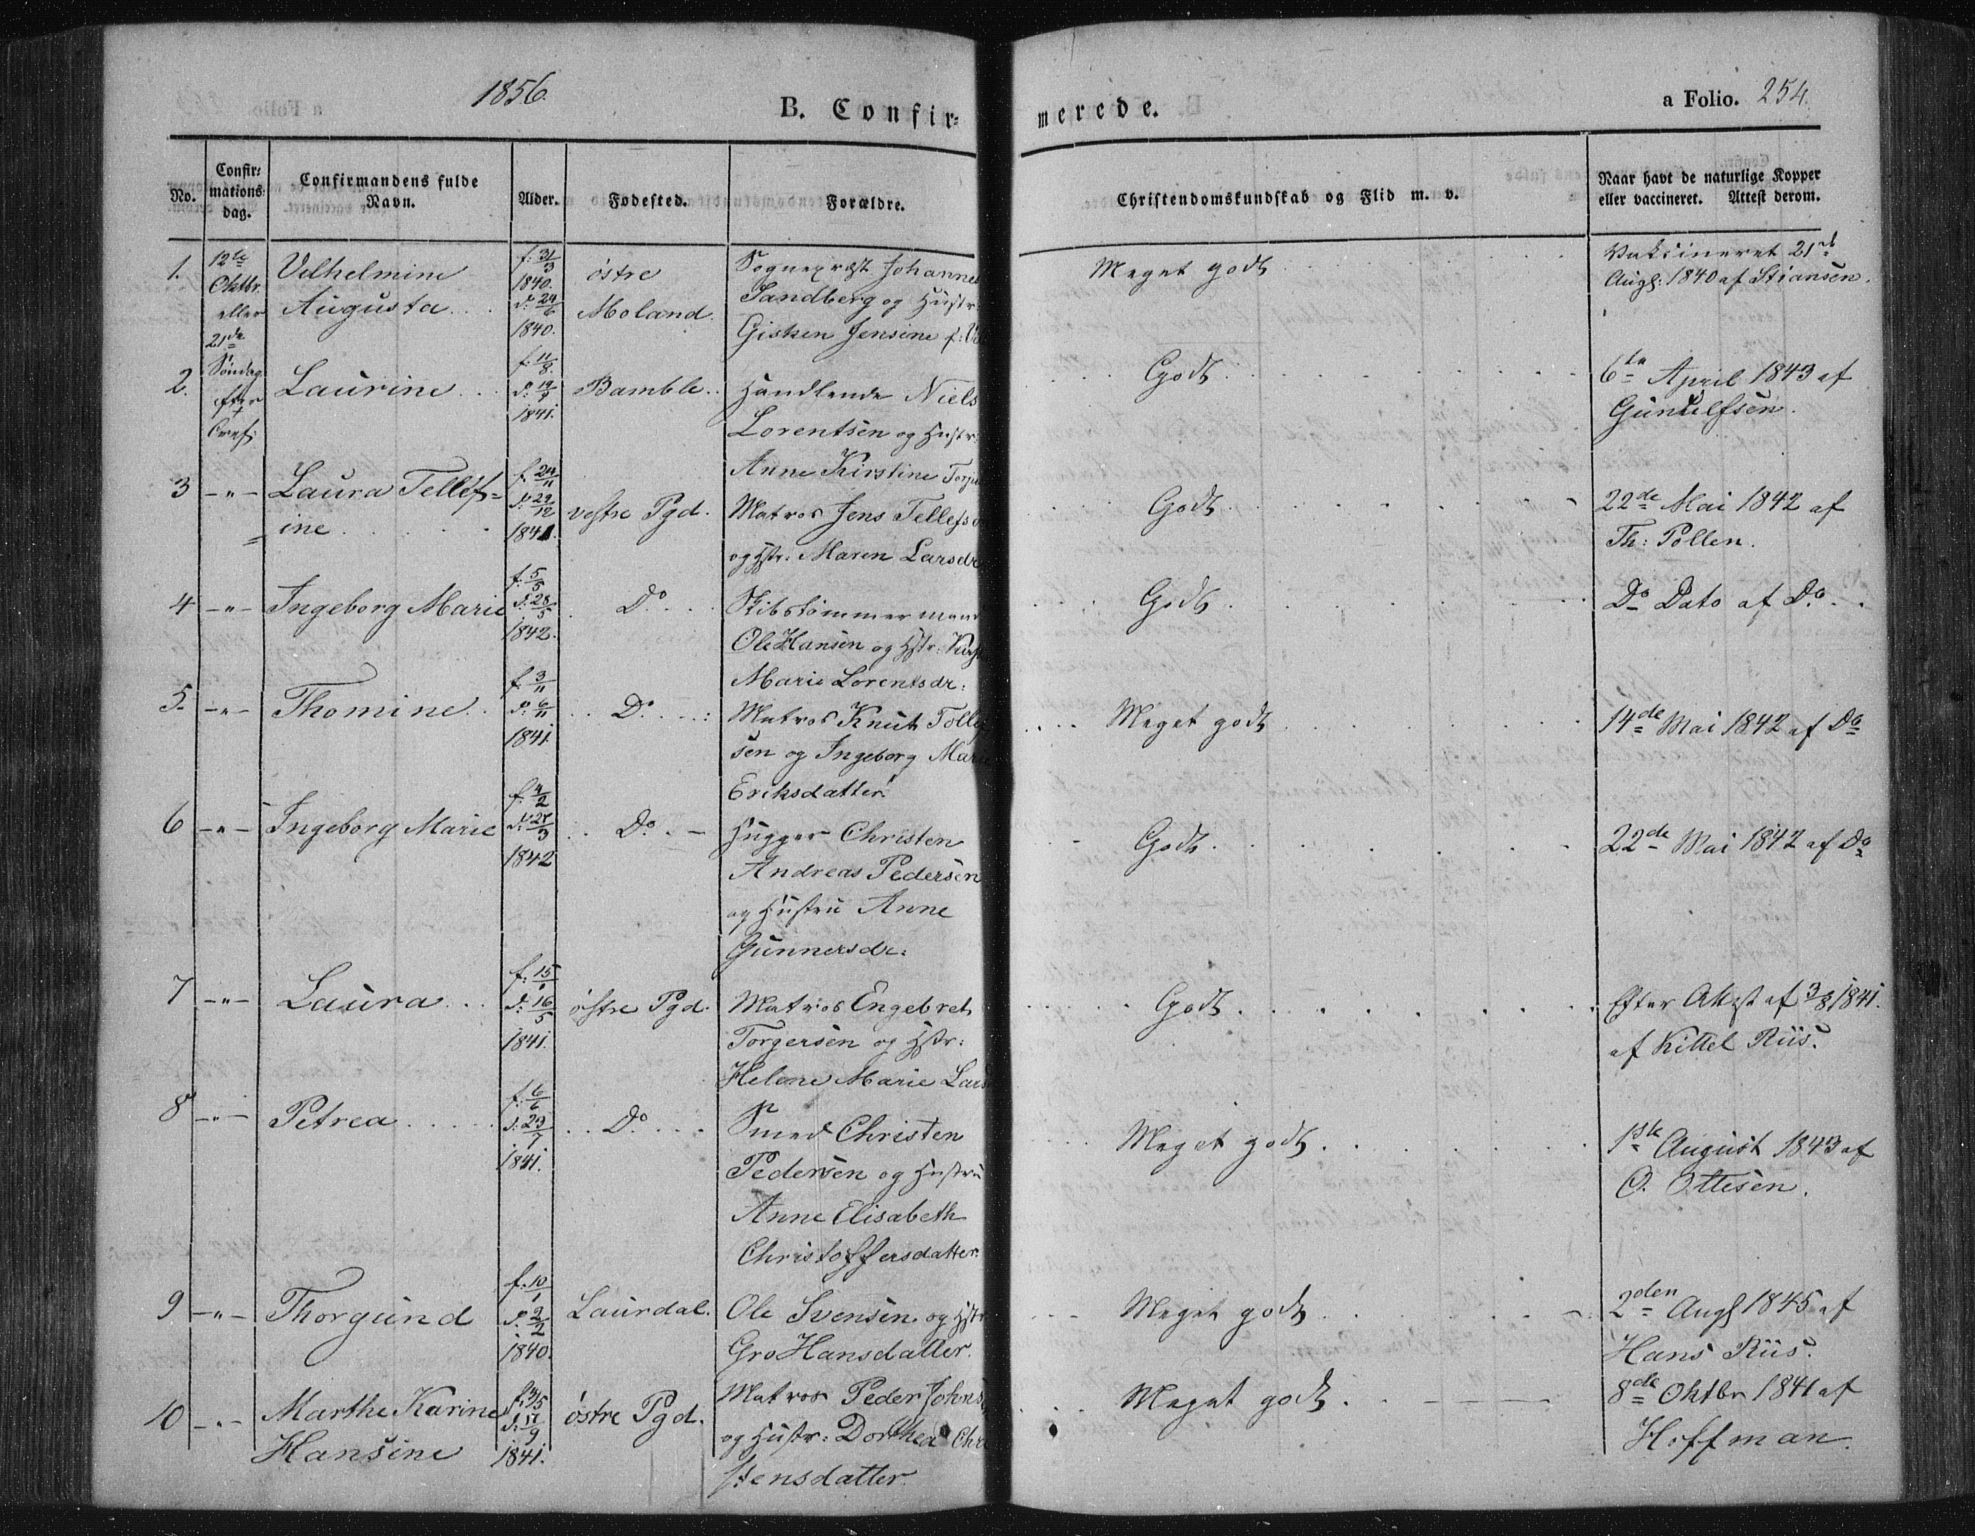 1856.
B. Confir=
merede.
a Folio. 254.
No.
Confir=
mations
dag.
Confirmandens fulde
Navn.
Alder.
Fødested.
Forældre.
Christendomskundskab og Flid m. v.
Naar havt de naturlige Kopper
eller vaccineret. Attest derom.
1.
12te
Oktbr.
eller
21de
Søndag
efter
Vilhelmine
Augusta
f. 31/3
1840.
d. 24/6
1840.
østre
Moland.
Sognepræst Johannes
Sandberg og Hustr:
Gisken Jensine f:
Meget godt
Vaksineret 21de
Augs: 1840 af Stiansen.
2.
Laurine
f. 11/8.
d. 19/9
1841.
Bamble.
Handlende Niels
Lorentsen og Hustr:
Anne Kirstine
Godt
6te April 1843 af
Gunulfsen.
3 -"-
Laura Tellef=
ine
f. 24/11
d. 29/12
1841.
vestre Pgd.
Matros Jens Tellefs
og Hstr: Maren Larsdr
Godt
22de Mai 1842 af
Th: Pollen.
4 -"-
Ingeborg Marie
f. 5/5
d. 28/5
1842.
Do
Skibstømmermand
Ole Hansen og Hstr:
Marie Lorentsdr:
Godt
Do Dato af Do
5. -"-
Thomine
f. 3/11
d. 6/11
1841
Do
Matros Knut Tollef
sen og Ingeborg Marie
Eriksdatter
Meget godt
14de Mai 1842 af Do
6 -"-
Ingeborg Marie
f. 4/2
d. 27/3
1842
Do
Hugger Christen
Andreas Pedersen
og Hustru Anne
Gunnersdr:
Godt
22de Mai 1842 af Do
7 -"-
Laura
f. 15/1
d. 16/5
1841.
østre Pgd.
Matros Engebret
Torgersen og Hstr:
Helene Marie Lars
Godt
Efter Attest af 3/8 1841.
af Kittel Riis.
8 -"-
Petrea
f. 6/6
d. 23/7
1841.
Do
Smed Christen
Pedersen og Hustru
Anne Elisabeth
Christoffersdatter.
Meget godt
1ste August 1843 af
O. Ottesen.
9 -"-
Thorgund
f. 10/1
d. 2/2
1840.
Laurdal.
Ole Svensen og Hstr
Gro Hansdatter.
Meget godt
2den Augs 1845 af
Hans Riis.
10 -"-
Marthe Karine
Hansine
d. 17/9
1841.
østre Pgd.
Matros Peder Johns
og Hustr: Dorthea Chri
stensdatter
Meget godt
8de Oktbr 1841 af
Hoffman.